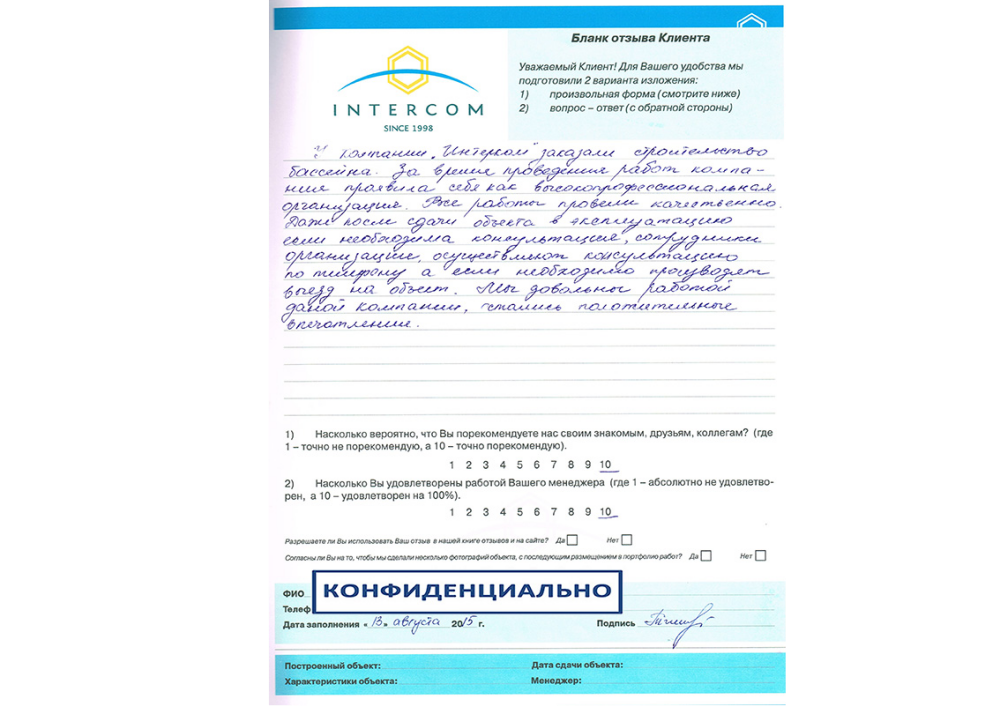 Бланк отзыва Клиента
Уважаемый Клиент! Для Вашего удобства мы
подготовили 2 варианта изложения:
1) произвольная форма (смотрите ниже)
2) вопрос – ответ (с обратной стороны)
INTERCOM
SINCE 1998
У компании „Интерком" заказали строительство
бассейна. За время проведения работ компа-
ния проявила себя как высокопрофессиональная
организация. Все работы провели качественно.
Даже после сдачи объекта в эксплуатацию
если необходима консультация, сотрудники
организации, осуществляют консультацию
по телефону а если необходимо производят
выезд на объект. Мы довольны работой
даной компании, остались положительные
впечатления.
1) Насколько вероятно, что Вы порекомендуете нас своим знакомым, друзьям, коллегам? (где
1 – точно не порекомендую, а 10 – точно порекомендую).
1 2 3 4 5 6 7 8 9 10
2) Насколько Вы удовлетворены работой Вашего менеджера (где 1 – абсолютно не удовлетво-
рен, а 10 – удовлетворен на 100%).
1 2 3 4 5 6 7 8 9 10
Разрешаете ли Вы использовать Ваш отзыв в нашей книге отзывов и на сайте? Да Нет
Согласны ли Вы на то, чтобы мы сделали несколько фотографий объекта, с последующим размещением в портфолио работ? Да Нет
ФИО
КОНФИДЕНЦИАЛЬНО
Телеф
Дата заполнения «13» августа 2015 г. Подпись
Построенный объект: Дата сдачи объекта:
Характеристики объекта: Менеджер: